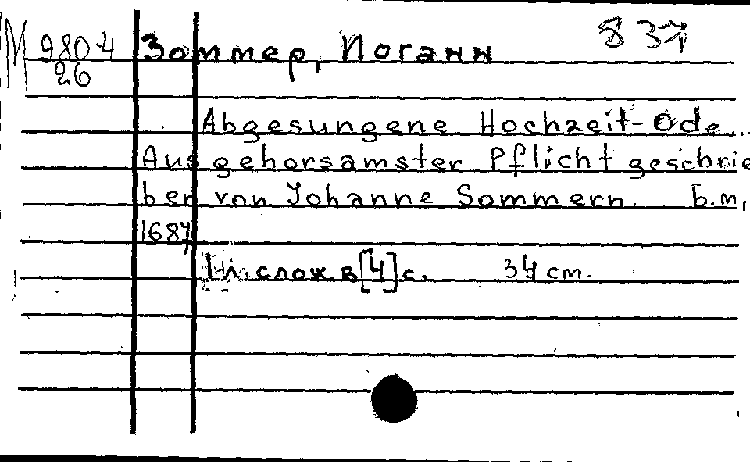 М 980-4 Зоммер, Иоганн 837
26
Abgesungene Hochzeit-Ode...
Aus gehorsamster Pflicht geschrie
ben von Johanne Sommern. б.м.,
1687
1 л. слож в [4] с. 34 cm.